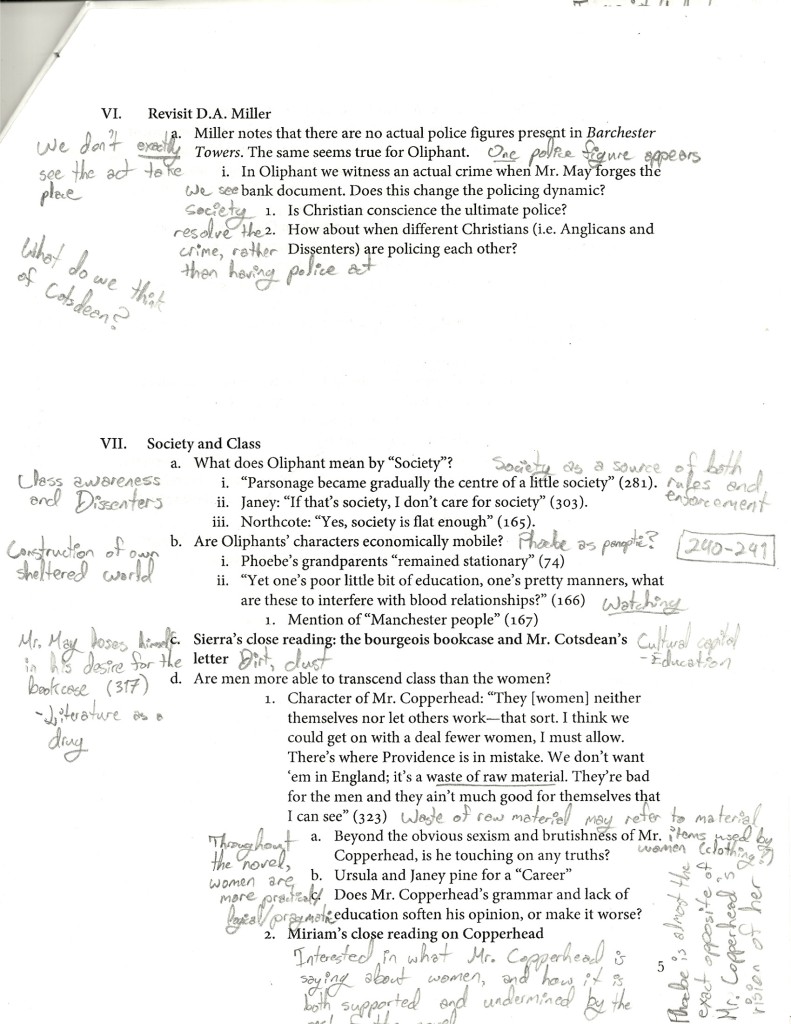 VI. Revisit D.A. Miller
a. Miller notes that there are no actual police figures present in Barchester
Towers. The same seems true for Oliphant. One police figure appears
We don't exactly
see the act take
place
i. In Oliphant we witness an actual crime when Mr. May forges the
bank document. Does this change the policing dynamic?
We see
society
resolve the
crime, rather
than having police act
1. Is Christian conscience the ultimate police?
2. How about when different Christians (i.e. Anglicans and
Dissenters) are policing each other?
What do we think
of Cotsdean?
VII. Society and Class
a. What does Oliphant mean by “Society”?
Society as a source of both
rules and
enforcement
Class awareness
and Dissenters
i. “Parsonage became gradually the centre of a little society” (281).
ii. Janey: “If that’s society, I don’t care for society” (303).
iii. Northcote: “Yes, society is flat enough” (165).
b. Are Oliphants’ characters economically mobile? Phoebe as panoptic? 240-241
Construction of own
sheltered world
i. Phoebe’s grandparents “remained stationary” (74)
ii. “Yet one’s poor little bit of education, one’s pretty manners, what
are these to interfere with blood relationships?” (166) Watching
1. Mention of “Manchester people” (167)
c. Sierra’s close reading: the bourgeois bookcase and Mr. Cotsdean’s
letter Dirt, dust
Cultural capital
- Education
Mr. May loses himself
in his desire for the
bookcase (317)
- Literature as a
drug
d. Are men more able to transcend class than the women?
1. Character of Mr. Copperhead: “They [women] neither
themselves nor let others work—that sort. I think we
could get on with a deal fewer women, I must allow.
There’s where Providence is in mistake. We don’t want
’em in England; it’s a waste of raw material. They’re bad
for the men and they ain’t much good for themselves that
I can see” (323) Waste of raw material may refer to material
items used by
women (clothing?)
a. Beyond the obvious sexism and brutishness of Mr.
Copperhead, is he touching on any truths?
b. Ursula and Janey pine for a “Career”
c. Does Mr. Copperhead’s grammar and lack of
education soften his opinion, or make it worse?
Throughout
the novel,
women are
more practical/
logical/pragmatic
2. Miriam’s close reading on Copperhead
Interested in what Mr. Copperhead is
saying about women, and how it is
both supported and undermined by the
Phoebe is almost the
exact opposite of
Mr. Copperhead's
vision of her
5